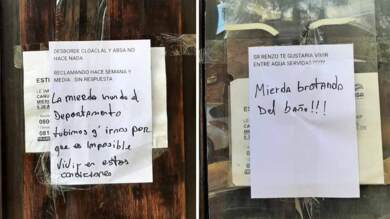 DESBORDE CLOACLAL Y ABSA NO
HACE NADA
RECLAMANDO HACE SEMANA Y
MEDIA SIN RESPUESTA
La mierda inundo el
Departamento
tubimos q' irnos por
que es Imposible
Vivir en estas
condiciones
SR RENZO TE GUSTARIA VIVIR
ENTRE AGUA SERVIDAS ?????
Mierda brotando
Del baño!!!